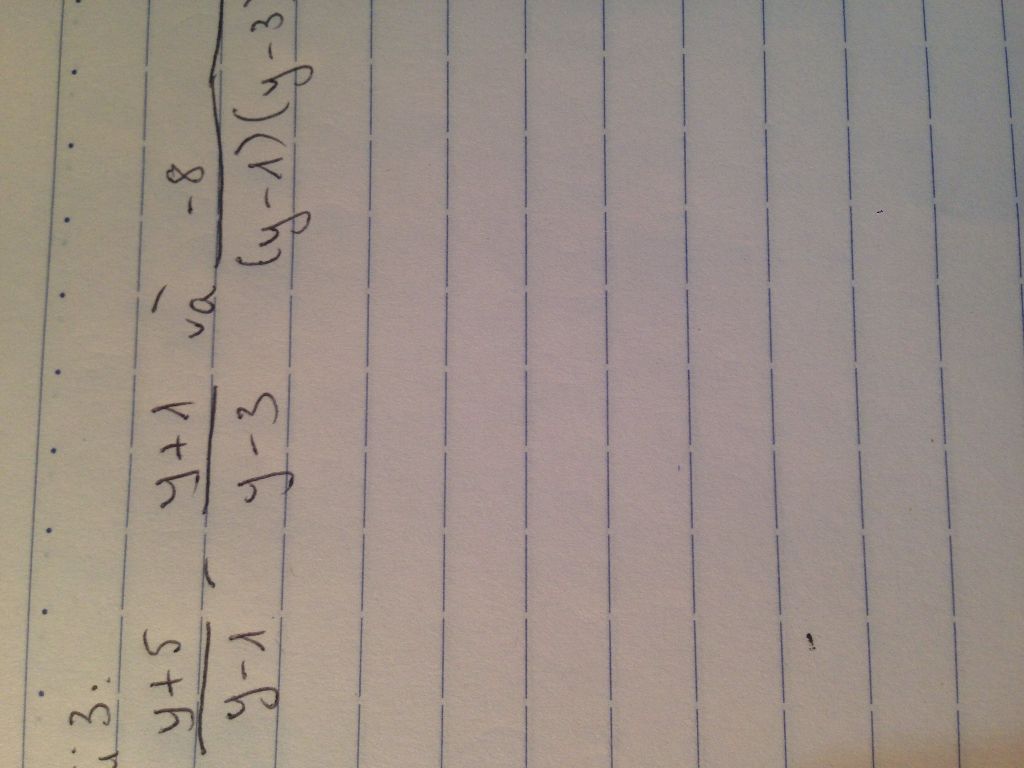 3:
y+5/y-1 , y+1/y-3 và -8/(y-1)(y-3)